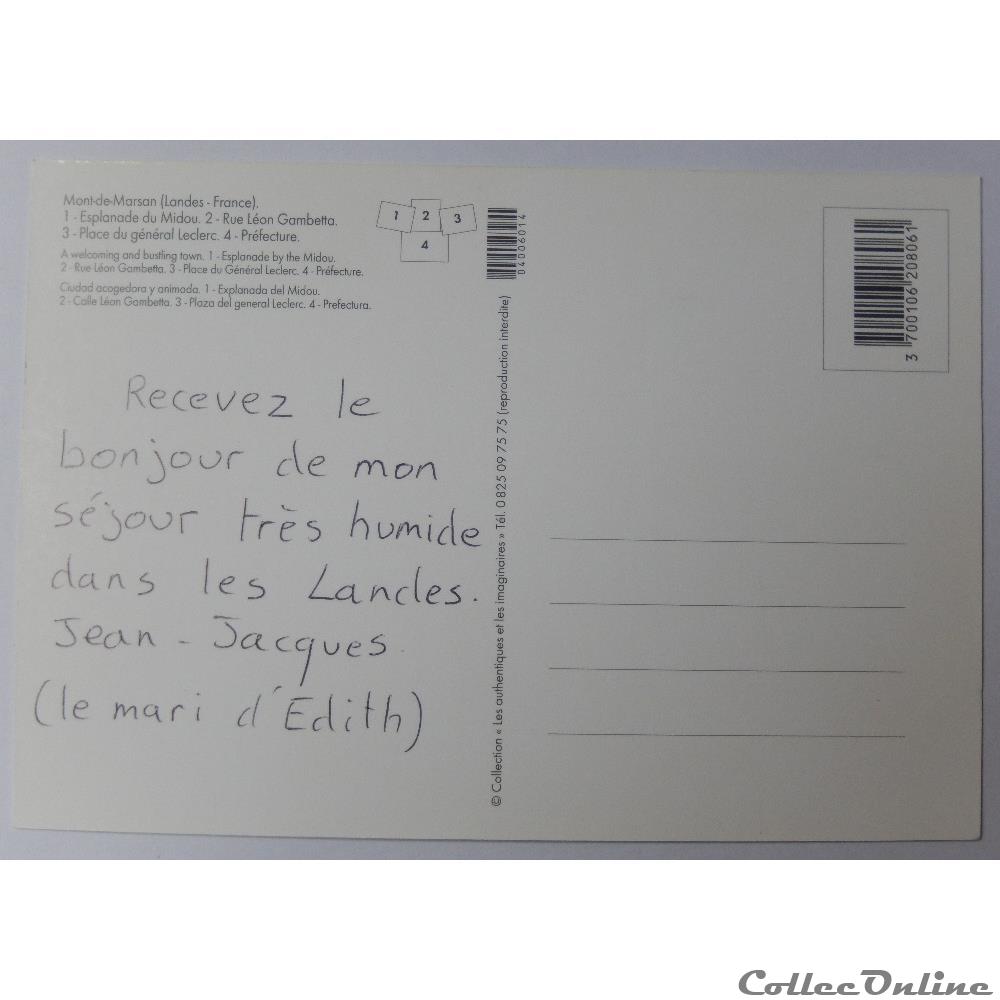 Mont-de-Marsan (Landes - France).
1 - Esplanade du Midou. 2 - Rue Léon Gambetta.
3 - Place du général Leclerc. 4 - Préfecture.
A welcoming and bustling town. 1 - Esplanade by the Midou.
2 - Rue Léon Gambetta. 3 - Place du Général Leclerc. 4 - Préfecture.
Ciudad acogedora y animada. 1 - Explanada del Midou.
2 - Calle Léon Gambetta. 3 - Plaza del general Leclerc. 4 - Prefectura.
1 2 3
4
04006014
3 700106 208061
Recevez le
bonjour de mon
séjour très humide
dans les Landes.
Jean - Jacques.
(le mari d'Edith)
© Collection « Les authentiques et les imaginaires » Tél. 0 825 09 75 75 (reproduction interdite)
CollecOnline